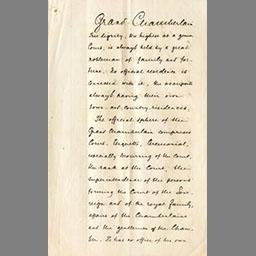 Grand Chamberlain
This dignity, the highest as a gen
Court, is always held by a great
nobleman of family and for
tune. No official residence is
connected with it, the occupants
always having their own
town and country residences.
The official sphere of the
Grand Chamberlain comprises
Court, Etiquette, Ceremonial,
especially mourning of the court,
the rank at the Court, the
superintendence of the persons
forming the Court of the Sov
reign and of the royal family,
affairs of the Chamberlains
and the gentlemen of the Cham
ber. He has no office of his own